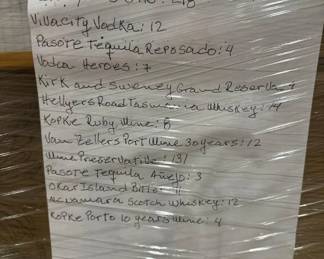 Vivacity Vodka: 12
Pasote Tequila Reposado: 4
Vodca Heroes: 7
Kirk and Sweney Grand Reserva: 4
Hellyers Road Tasmania Whiskey: 14
Kopke Ruby Wine: 8
Van Zellers Port Wine 30 years: 12
Wine Preservative: 131
Pasote Tequila Añejo: 3
Island
McNamara Scotch Whiskey: 12
Kopke Porto 10 years Wine: 4